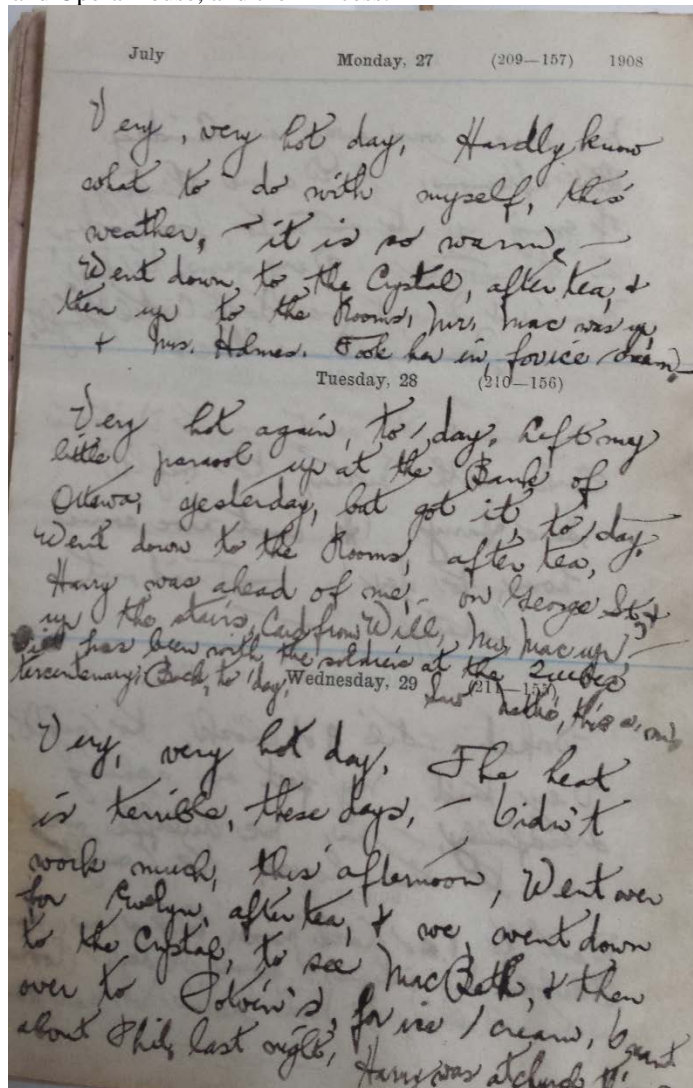 and Opera House, and the Princess.
July Monday, 27 (209—157) 1908
Very, very hot day, Hardly know
what to do with myself, this
weather, — it is so warm, —
Went down, to the Crystal, after tea, &
then up to the Rooms, Mr. Mac was up,
& Mrs. Holmes. Took her in, for ice cream —
Tuesday, 28 (210—156)
Very hot again, to / day. Left my
little parasol up at the Bank of
Ottawa, yesterday, but got it, to / day,
Went down to the Rooms, after tea,
Harry was ahead of me, — on George St, &
up the stairs, Card from Will, Mr. Mac up, —
Will has been with the soldiers at the Quebec
tercentenary. Back, to day, Saw this a.m.
Wednesday, 29 (211—155)
Very, very hot day, The heat
is terrible, these days, — Didn't
work much, this afternoon, Went over
for Evelyn, after tea, & we, went down
to the Crystal, to see MacBeth, & then
over to Potvin's, for ice / cream,
about Phil, last night, Harry was at church